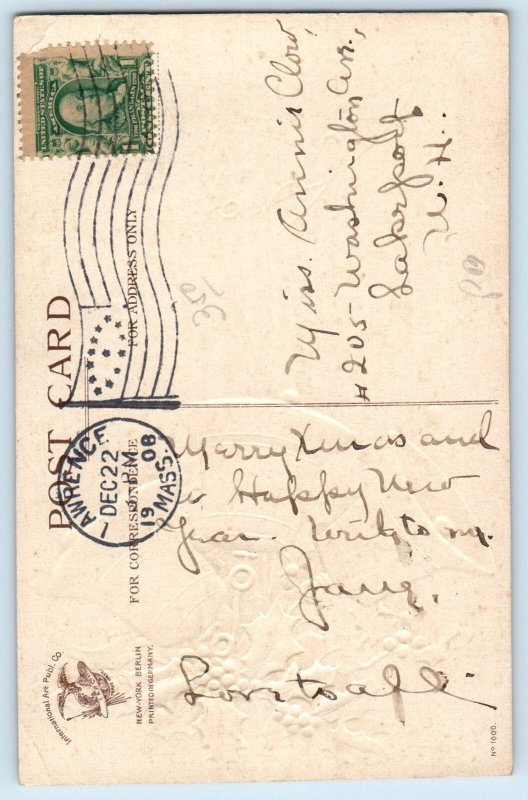 POST CARD
FOR CORRESPONDENCE
FOR ADDRESS ONLY
LAWRENCE
DEC 22
PM
1908
MASS.
UNITED STATES OF AMERICA
Miss. Annie Clow,
#205 Washington Av.,
Lakeport
N.H.
Merry Xmas and
a Happy New
Year. Write to me.
Love to all.
150
International Art Publ. Co.
NEW-YORK BERLIN
PRINTED IN GERMANY.
No 1000.